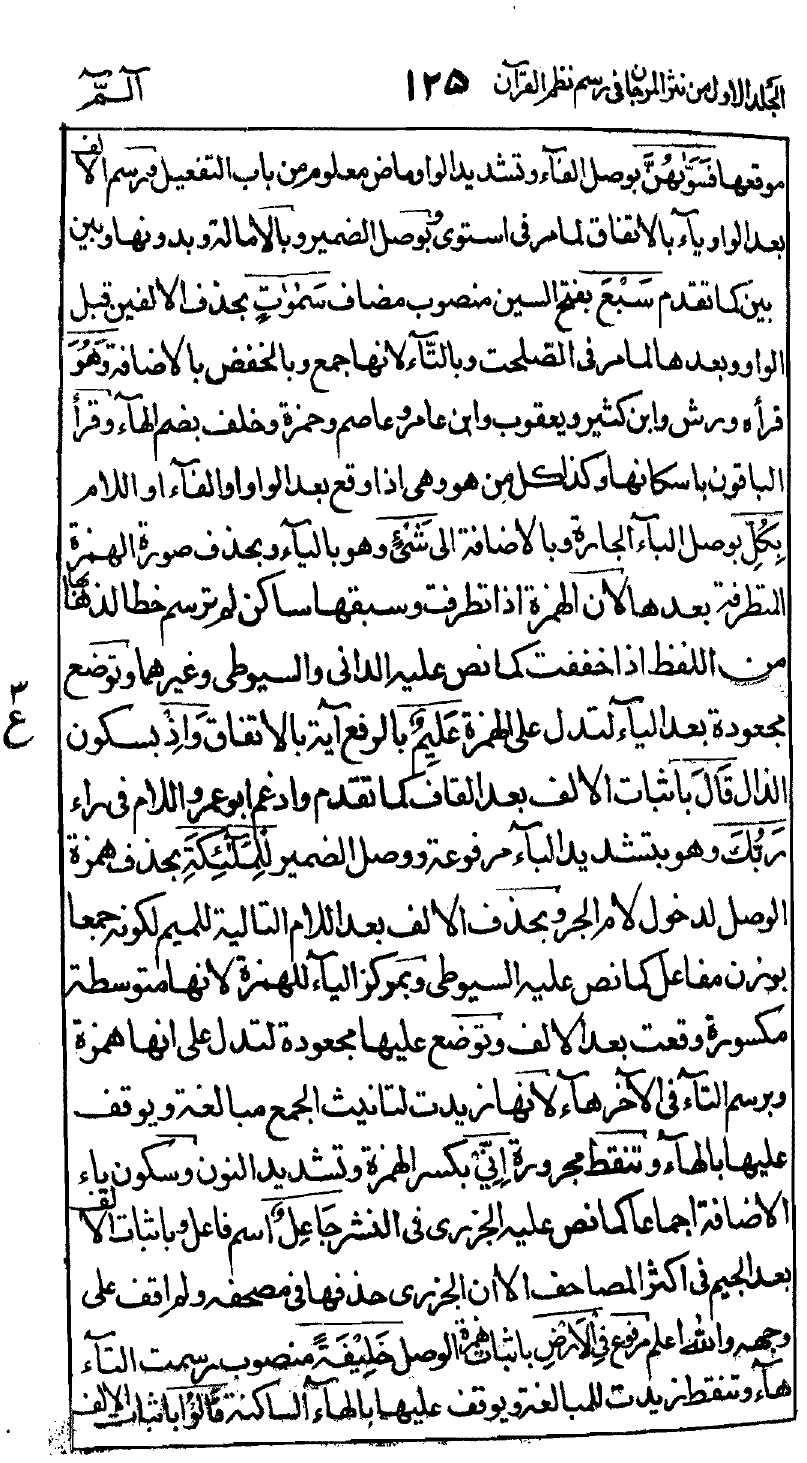 الجلد الاول من نثر المرجان فى رسم نظم القرآن ١٢٥ آلمّ
موقعها فَسَوّٰىهُنَّ بوصل الفآء وتشديد الواو ماض معلوم من باب التفعيل وبرسم الالف
بعد الواو يآء بالاتفاق لما مر فى استوى وبوصل الضمير وبالامالة وبدونها وبين
بين كما تقدم سَبْعَ بفتح السين منصوب مضاف سَمٰوٰتٍ بحذف الالفين قبل
الواو وبعدها لما مر فى الصّٰلحت وبالتّآء لانها جمع وبالخفض بالاضافة وَهُوَ
قرأه ورش وابن كثير ويعقوب وابن عامر وعاصم وحمزة وخلف بضم الهآء وقرأ
الباقون باسكانها وكذا كل من هو وهى اذا وقع بعد الواو او الفآء او اللام
بِكُلِّ بوصل البآء الجارة وبالاضافة الى شَىْءٍ وهو باليآء وبحذف صورة الهمزة
المتطرفة بعدها لان الهمزة اذا تطرفت وسبقها ساكن لم ترسم خطا لذهابها
من اللفظ اذا خففت كما نص عليه الدانى والسيوطى وغيرهما وتوضع
مجعودة بعد اليآء لتدل على الهمزة عَلِيْمٌ بالرفع آية بالاتفاق وَاِذْ بسكون
الذال قَالَ باثبات الالف بعد القاف كما تقدم وادغم ابو عمرو اللام فى راء
رَبُّكَ وهو بتشديد البآء مرفوعة ووصل الضمير لِلْمَلٰٓئِكَةِ بحذف همزة
الوصل لدخول لام الجر وبحذف الالف بعد اللام التالية للميم لكونه جمعا
بوزن مفاعل كما نص عليه السيوطى وبمركز اليآء للهمزة لانها متوسطة
مكسورة وقعت بعد الالف وتوضع عليها مجعودة لتدل على انها همزة
وبرسم التآء فى الآخر هآء لانها زيدت لتانيث الجمع مبالغة ويوقف
عليها بالهآء وتنقط مجرورة اِنِّىْ بكسر الهمزة وتشديد النون وسكون ياء
الاضافة اجماعا كما نص عليه الجزرى فى النشر جَاعِلٌ اسم فاعل وباثبات الالف
بعد الجيم فى اكثر المصاحف الا ان الجزرى حذفها فى مصحفه ولم اقف على
وجهه والله اعلم مرفوع فِى الْاَرْضِ باثبات همزة الوصل خَلِيْفَةً منصوب رسمت التآء
هآء وتنقط زيدت للمبالغة ويوقف عليها بالهآء الساكنة قَالُوْا باثبات الالف
٣
ع